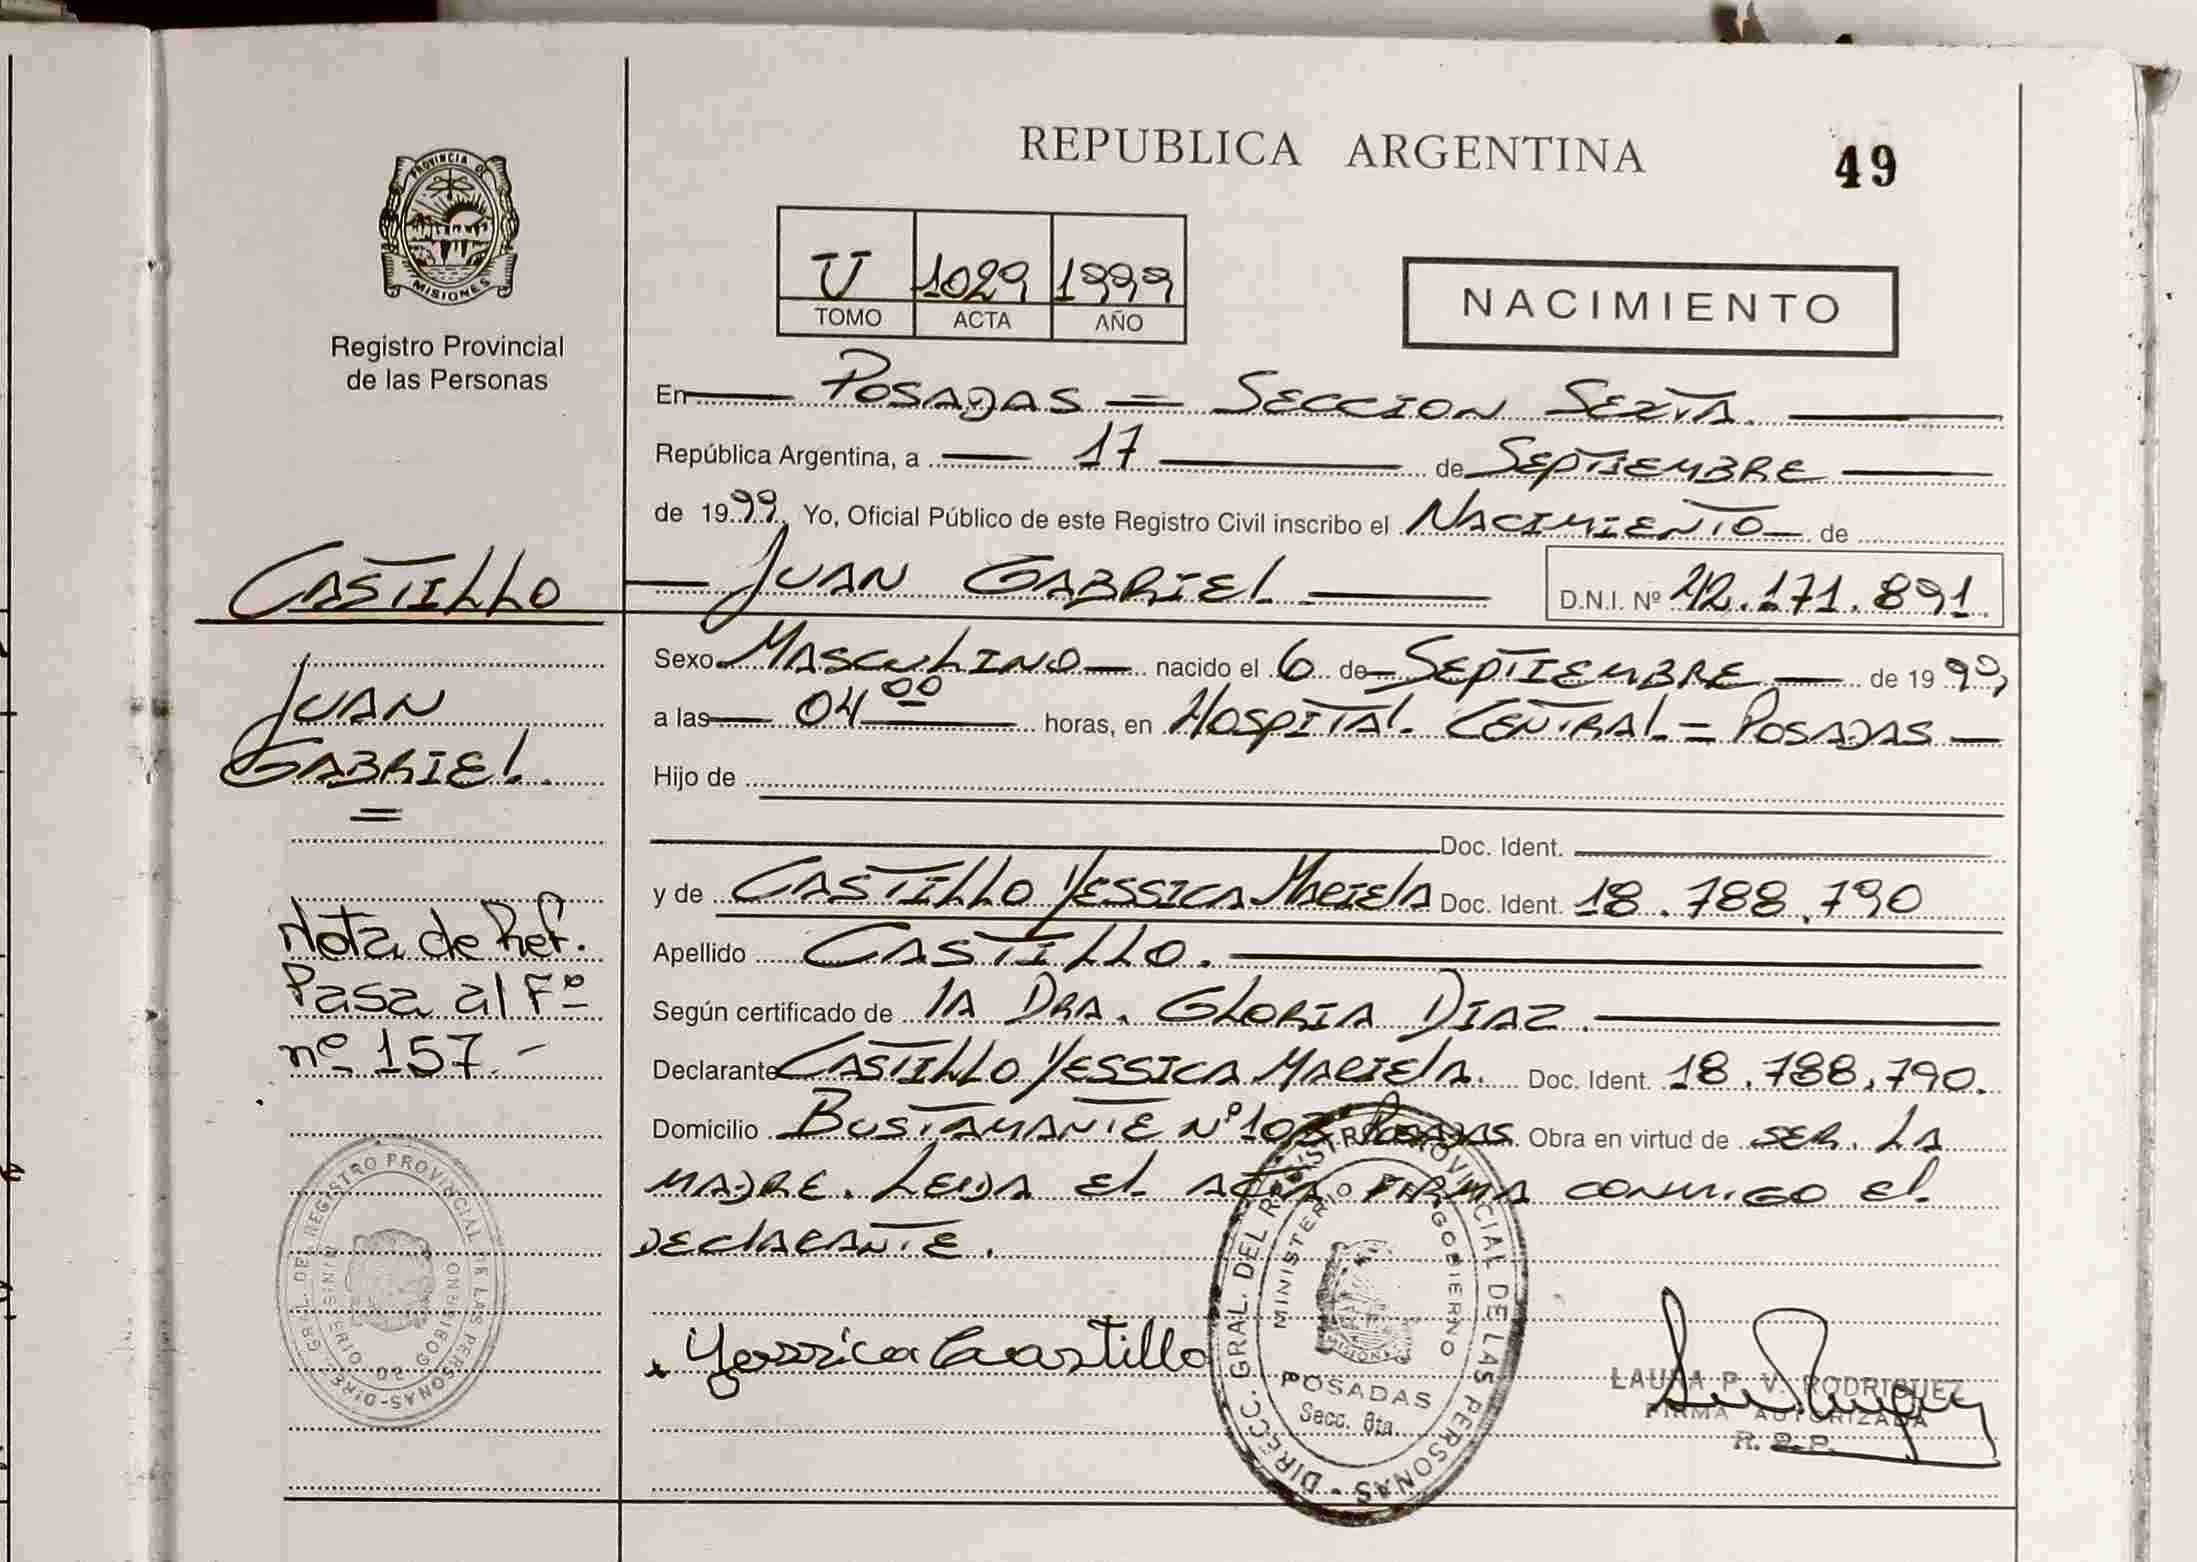 REPUBLICA ARGENTINA
49
PROVINCIA DE
MISIONES
Registro Provincial
de las Personas
U 1029 1999
TOMO ACTA AÑO
NACIMIENTO
En POSADAS = SECCION SEXTA.
República Argentina, a 17 de SEPTIEMBRE
de 1999 Yo, Oficial Público de este Registro Civil inscribo el NACIMIENTO de
JUAN GABRIEL D.N.I. Nº 42.171.891
Sexo MASCULINO nacido el 6 de SEPTIEMBRE de 1999
a las 04 00 horas, en HOSPITAL CENTRAL = POSADAS
Hijo de
Doc. Ident.
y de CASTILLO YESSICA MARIELA Doc. Ident. 18.788.790
Apellido CASTILLO.
Según certificado de LA DRA. GLORIA DIAZ.
Declarante CASTILLO YESSICA MARIELA. Doc. Ident. 18.788.790.
Domicilio BUSTAMANTE Nº POSADAS. Obra en virtud de SER. LA
MADRE. LEIDA EL ACTA FIRMA CONMIGO EL
DECLARANTE.
Yessica Castillo
CASTILLO
JUAN
GABRIEL.
=
Nota de Ref.
Pasa al Fº
nº 157.-
DIRECC. GRAL. DEL REGISTRO PROVINCIAL DE LAS PERSONAS
MINISTERIO DE GOBIERNO
DIRECC. GRAL. DEL REGISTRO PROVINCIAL DE LAS PERSONAS
MINISTERIO GOBIERNO
MISIONES
POSADAS
Secc. 6ta.
LAURA P. V. RODRIGUEZ
FIRMA AUTORIZADA
R. P.